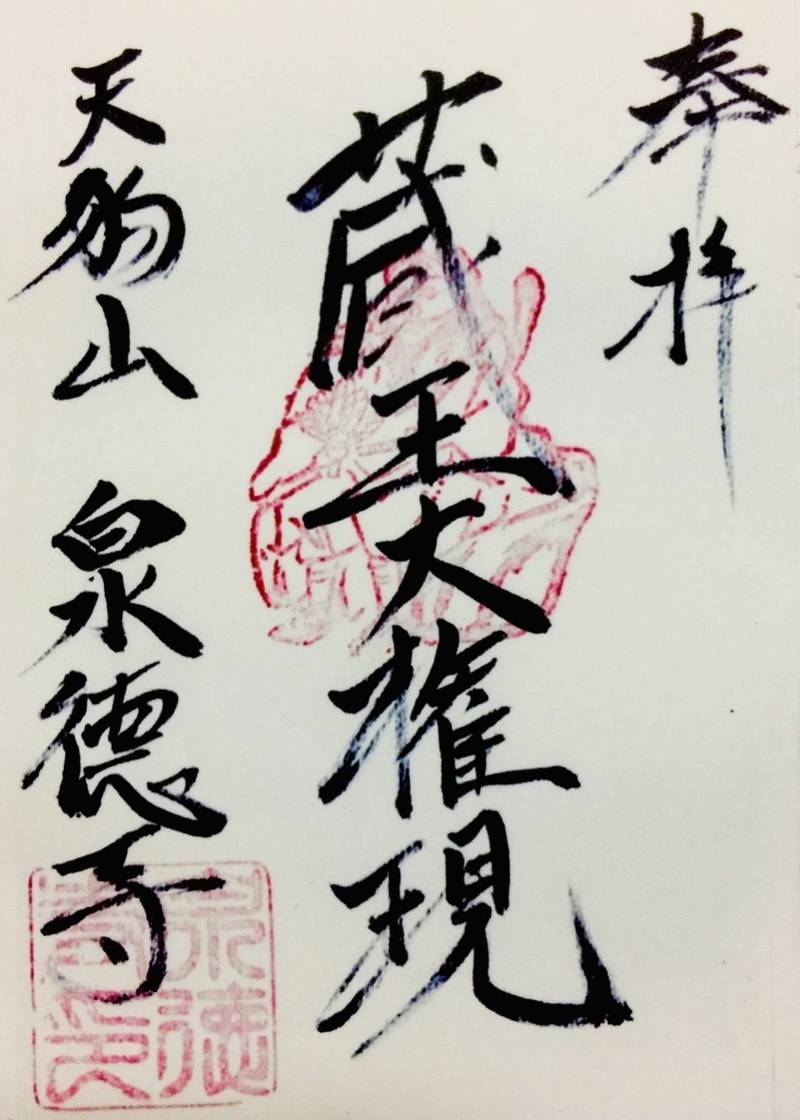 奉拝
蔵王大権現
天狗山 泉徳寺
泉徳寺印